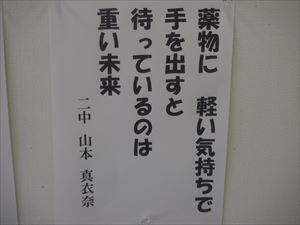 薬物に　軽い気持ちで
手を出すと
待っているのは
重い未来
二中　山本　真衣奈